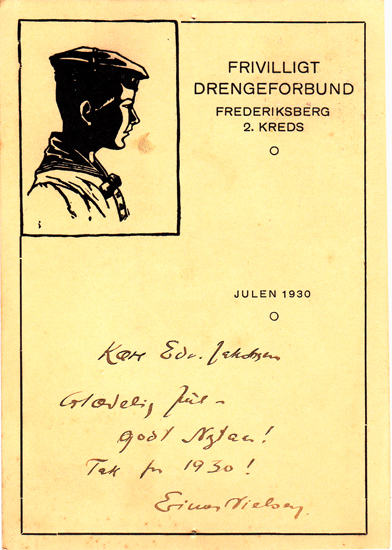 FRIVILLIGT
DRENGEFORBUND
FREDERIKSBERG
2. KREDS
JULEN 1930
Kære Edv. Jakobsen
Glædelig Jul -
godt Nytaar!
Tak for 1930!
Einar Nielsen.